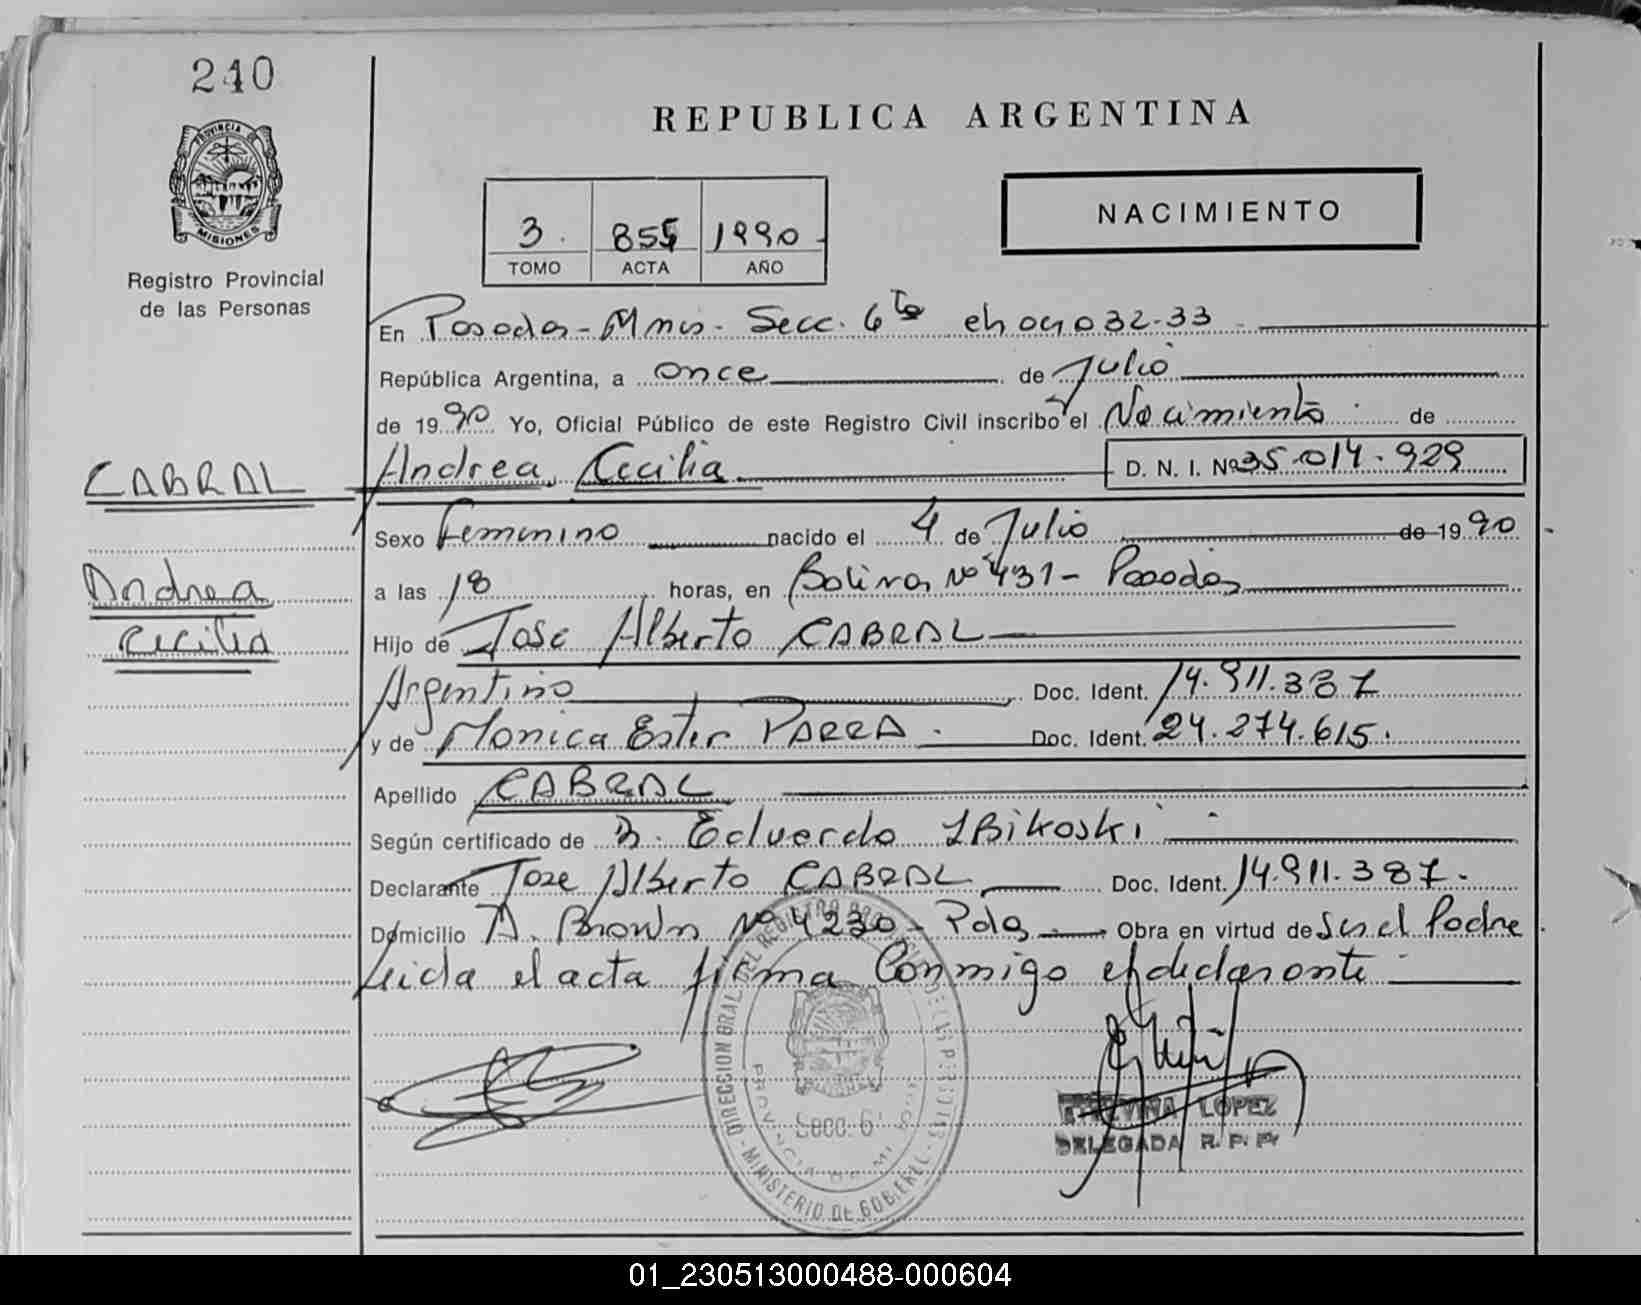 240
REPUBLICA ARGENTINA
PROVINCIA
MISIONES
Registro Provincial
de las Personas
3 855 1990
TOMO ACTA AÑO
NACIMIENTO
En Posadas - Mnes - Secc. 6ta 32-33
República Argentina, a once de Julio
de 1990 Yo, Oficial Público de este Registro Civil inscribo el Nacimiento de
CABRAL Andrea Cecilia D. N. I. Nº 35.014.929
Sexo Femenino nacido el 4 de Julio de 1990
Andrea a las 18 horas, en Bolivar Nº 431 - Posadas
Cecilia Hijo de Jose Alberto CABRAL
Argentino Doc. Ident. 14.911.387
y de Monica Ester PARRA Doc. Ident. 24.274.615.
Apellido CABRAL
Según certificado de Eduardo
Declarante Jose Alberto CABRAL Doc. Ident. 14.911.387.
Domicilio A. Brown Nº 4230 - Pdas Obra en virtud de ser el Padre
Leida el acta firma conmigo el declarante
DIRECCION GRAL. DEL REGISTRO PROVINCIAL DE LAS PERSONAS
MINISTERIO DE GOBIERNO
PROVINCIA DE MISIONES
Secc. 6
LOPEZ
DELEGADA R. P. P.
01_230513000488-000604